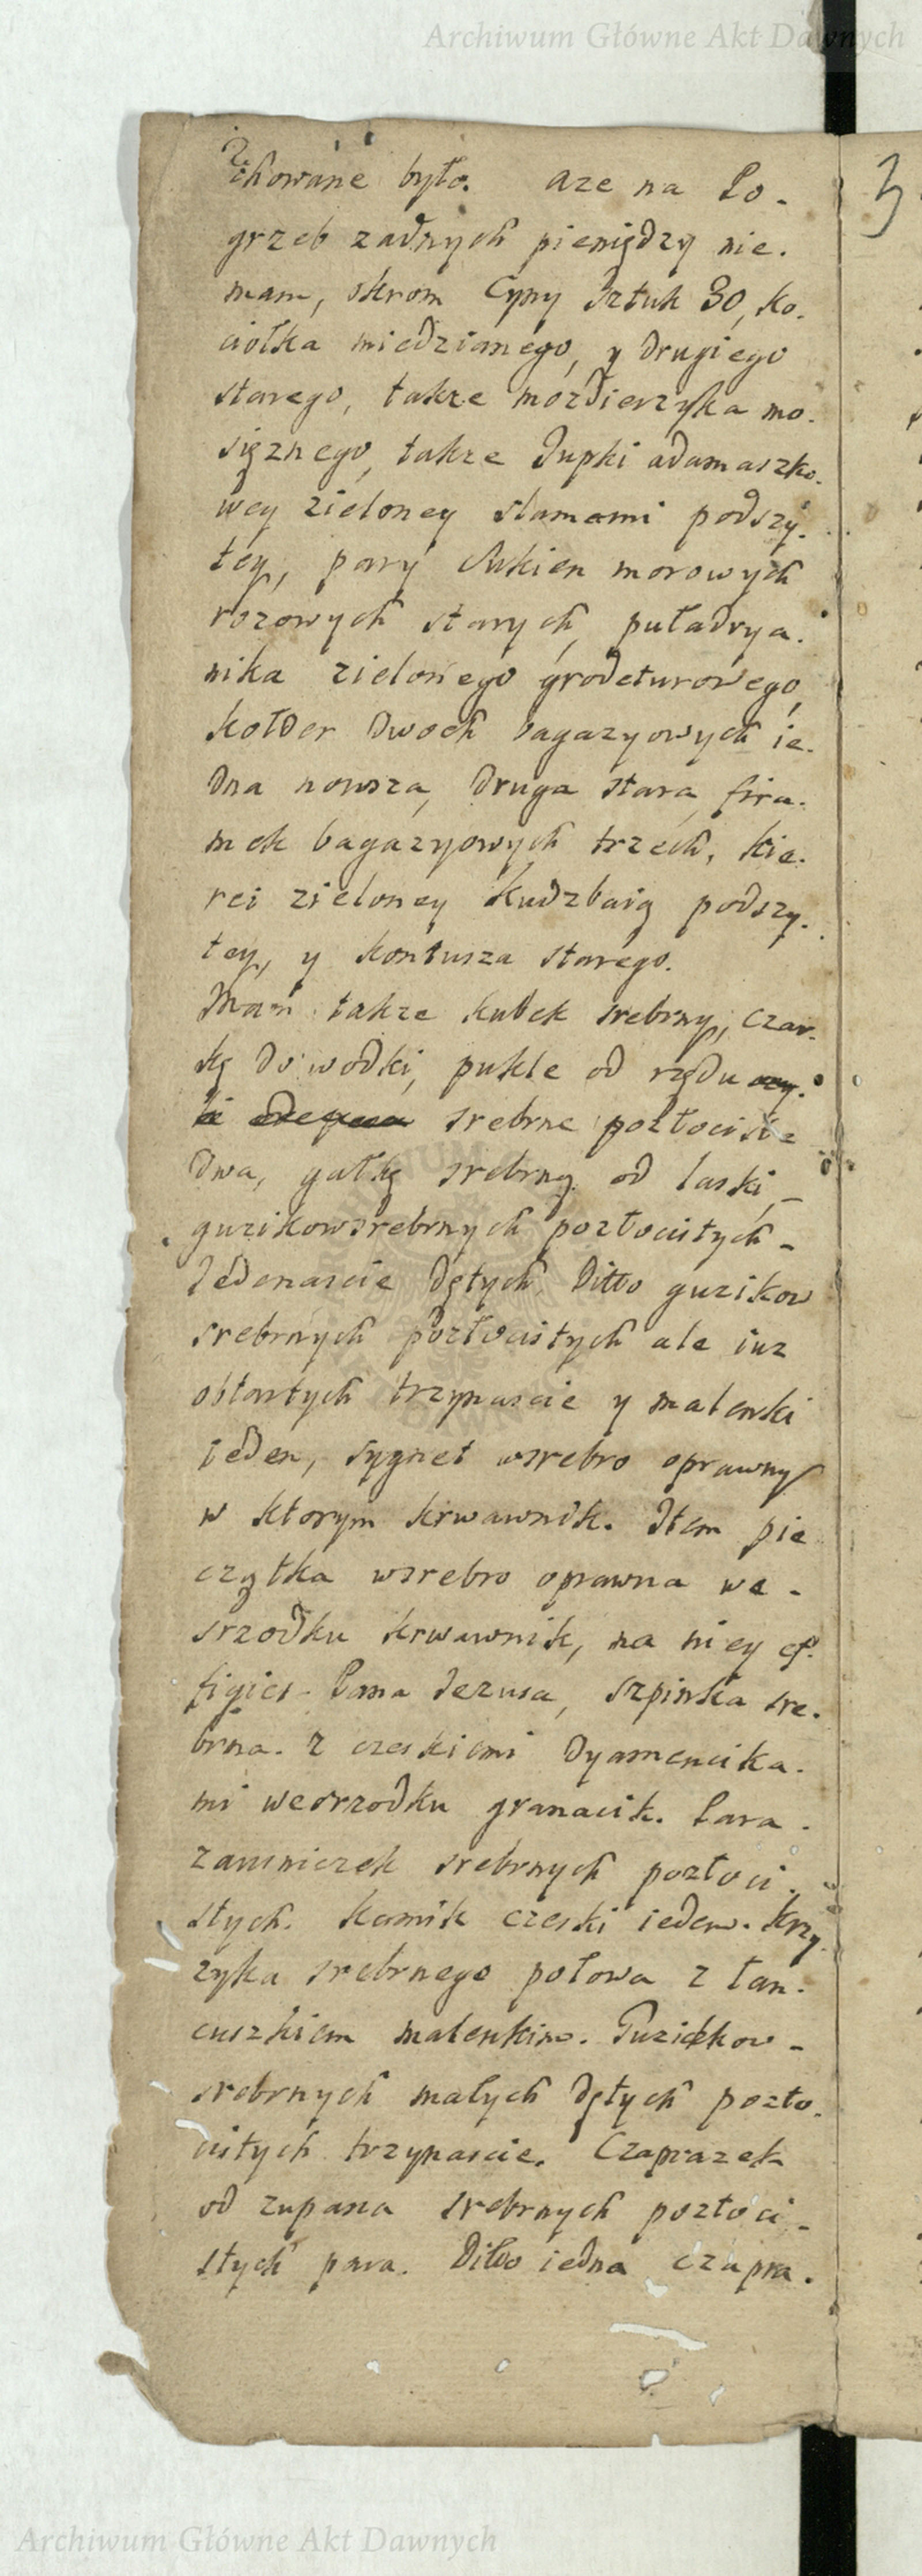 Archiwum Główne Akt Dawnych
3
chowane było. aze na Po-
grzeb zadnych pieniędzy nie-
mam, okrom Cyny Sztuk 30, ko-
ciołka miedzianego, y drugiego
starego, takze mozdierzyka mo-
sięznego, takze Jupki adamaszko-
wey zieloney slamami podszy-
tey, pary Sukien morowych
rozowych starych, puładrya-
nika zielonego grodeturowego,
kołder dwoch bagazyowych ie-
dna nowsza, druga stara, fira-
mek bagazyowych trzech, kie-
rei zieloney kudzbaią podszy-
tey, y kontusza starego.
Mam takze kubek srebrny, czar-
kę do wodki, pukle od rzędu
srebrne pozłociste
dwa, gałkę srebrną od laski,
guzikow srebrnych pozłocistych
Jedenascie dętych, Ditto guzikow
srebrnych pozłocistych ale iuz
obtartych trzynascie y malenki
ieden, sygnet wsrebro oprawny
w ktorym krwawnik. Item pie
czątka wsrebro oprawna we-
srzodku krwawnik, na niey ef-
figies Pana Jezusa, szpinka sre-
brna z czeskiemi dyamencika-
mi wesrzodku granacik. Para
zausniczek srebrnych pozłoci-
stych. kamik czeski ieden. krzy-
zyka srebrnego połowa z łan-
cuszkiem malenkim. Guzickow
srebrnych małych dętych pozło-
cistych trzynascie. Czaprazek
od zupana srebrnych pozłoci-
stych para. Ditto iedna czapra-
Archiwum Główne Akt Dawnych